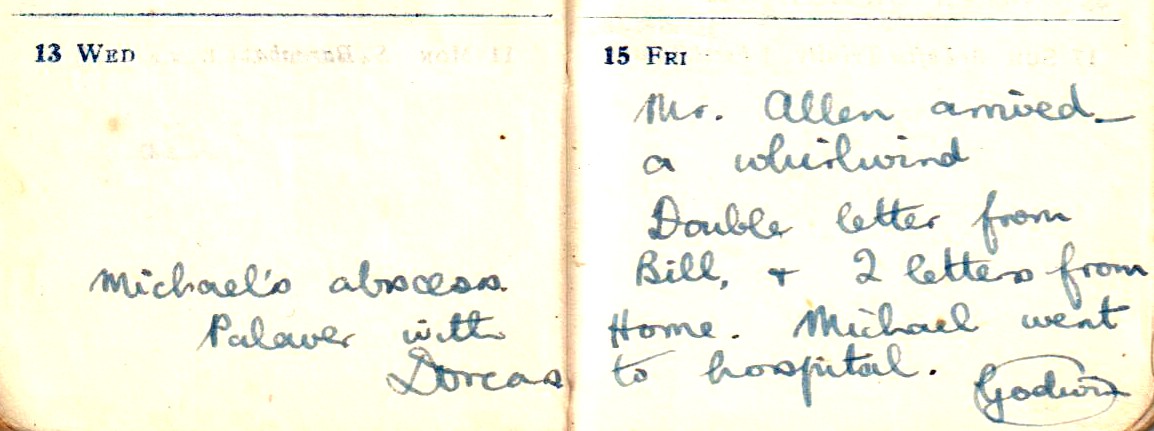 13 WED
Michael's abscess.
Palaver with
Dorcas
15 FRI
Mr. Allen arrived_
a whirlwind
Double letter from
Bill, + 2 letters from
Home. Michael went
to hospital.
Godwin